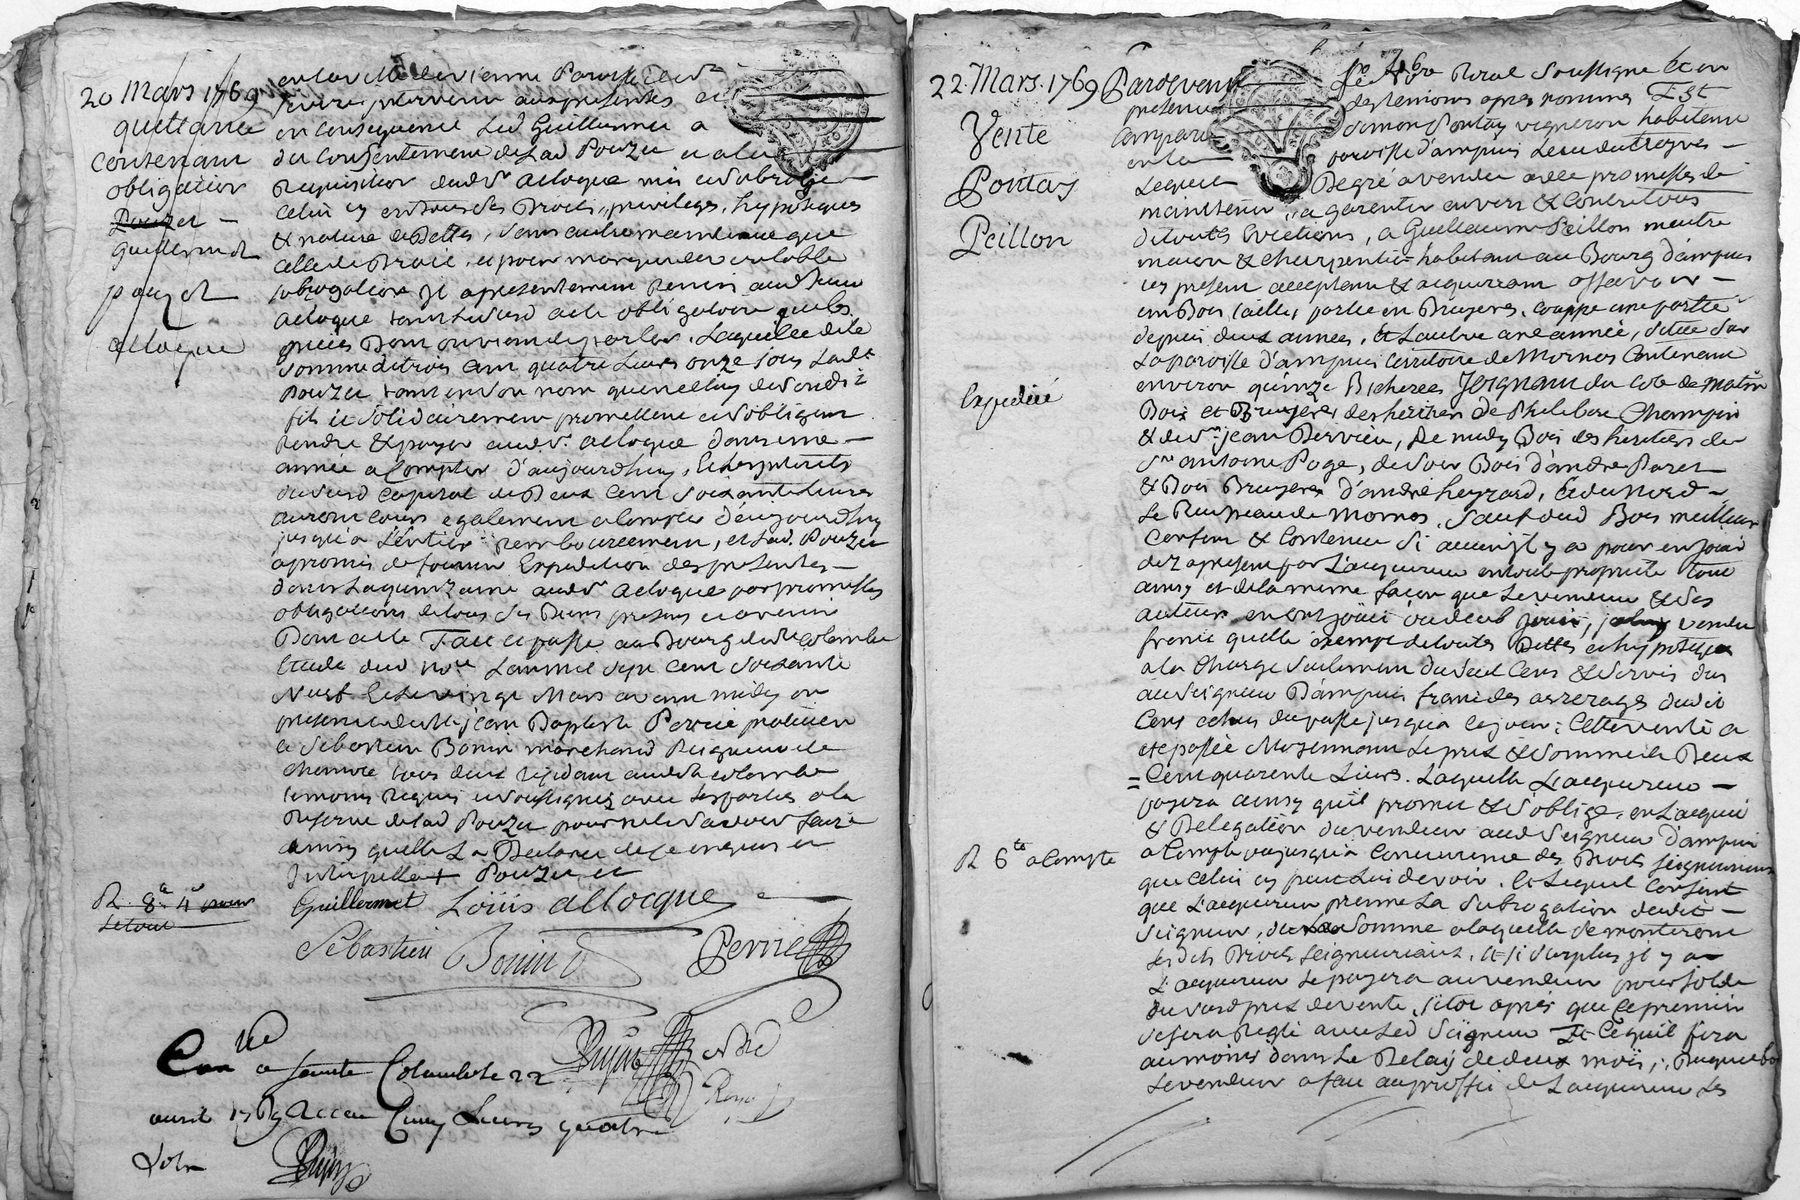 20 Mars 1769
quettance
contenant
obligation
Pouzet
Guillermet
pouzet
alloque
en la ville de vienne Paroisse de st
en consequence led Guillermet a
du consentement de lad Pouzet et a la
Requisition dud Sr allocque mis et subrogé
celui cy en tous ses Droits, privileges, hypoteques
& nature de Dettes, sans autre maintenue que
celle de Droit, et pour marque de valable
subrogation Il a presentement Remis aud Sieur
allocque
pieces Dont on vient de parler, Laquelle dite
somme de trois cent quatre Livres onze sous Lad
Pouzet tant en son nom que de celluy de son dit
fils et solidairement promettent et s'obligent
Rendre & payer aud Sr. allocque dans une
année a Compter d'aujourdhuy, & les interets
dudit capital de Deux Cent soixante Livres
auront cours egalement a compter d'aujourdhuy
jusqu'a l'entier remboursement, et Lad. Pouzet
a promis de fournir Expedition des presentes
dans La quinzaine aud Sr allocque par promesses
obligations de tous ses Biens presens et avenir
Dont acte Fait et passé au Bourg de Ste Colombe
Etude dud nore L'an mil sept Cent soixante
Neuf & le vingt Mars avant midy en
presence de Me jean Baptiste Perrie praticien
& Sebastien Bonin marchand Peigneur de
chanvre tous deux residant aud Ste Colombe
temoins Requis et soussignés avec les parties a la
Reserve de lad Pouzet pour ne le savoir faire
ainsy quelle L'a Declaré de ce enquise et
Interpellée + Pouzet
R. 8# 4s pour
le tout
Guillermet Loüis allocque
Sebastien Bonin Perrie
Con lle a sainte Colombe le 22
avril 1769 Reçu Cinq Livres quatre
sols
22 Mars. 1769
Vente
Pontay
Peillon
Expedié
R 6# a Compte
Pardevant le Nore Royal soussigné & en
presence des temoins apres nommés Est
Comparu Simon Pontay vigneron habitant
en la paroisse d'ampuis
Lequel De gré a vendu avec promesses de
maintenir, & garentir envers & contre tous
de toutes Evictions, a Guillaume Peillon maitre
macon & charpentier habitant au Bourg d'ampuis
icy present acceptant & acquereur assavoir
un Bois taillis, partie en Bruyeres, couppé une partie
depuis deux années, & L'autre une année, situé sur
La paroisse d'ampuis territoire de Mornas Contenant
environ quinze Bicherées Joignant du coté de matin
Bois et Bruyeres des heritiers de Philibert Champin
& de Sr. jean Dervieu, de midy Bois des heritiers de
Sr antoine Poge, de soir Bois d'andre Paret
& Bois Bruyeres d'andré heyrard, & du Nord
Le Ruisseau de Mornas, sauf dud Bois meilleur
Confins & Contenue si aucuns il y a pour en jouir
dez a present par L'acquereur en toute proprieté tout
ainsy et de la meme facon que Le vendeur & ses
auteurs en ont joüi ou deub joüir,
franc quitte exempt de toutes Dettes et hypoteques
a la Charge seulement du seul Cens & servis dus
au Seigneur D'ampuis francs des arrerages dudit
Cens echus du passé jusqu'a ce jour: Cette vente a
ete passée Moyennant Le prix & somme de Deux
Cent quarante Livres. Laquelle L'acquereur
payera ainsy qu'il promet & s'oblige, en L'acquit
& Delegation du vendeur aud Seigneur D'ampuis
a Compte ou jusqu'a Concurrence des Droits seigneuriaux
que celui cy peut Lui devoir. Et Lequel Consent
que L'acquereur prenne La subrogation dudit
Seigneur, de la somme a laquelle se monteront
les dits Droits Seigneuriaux. Et si surplus il y a
L'acquereur Le payera au vendeur pour solde
du susd prix de vente, sitot après que ce premier
se sera Reglé avec Led Seigneur Et Ce qu'il fera
au moins dans Le Delay de deux mois;
Le vendeur a fait au proffit de L'acquereur Les